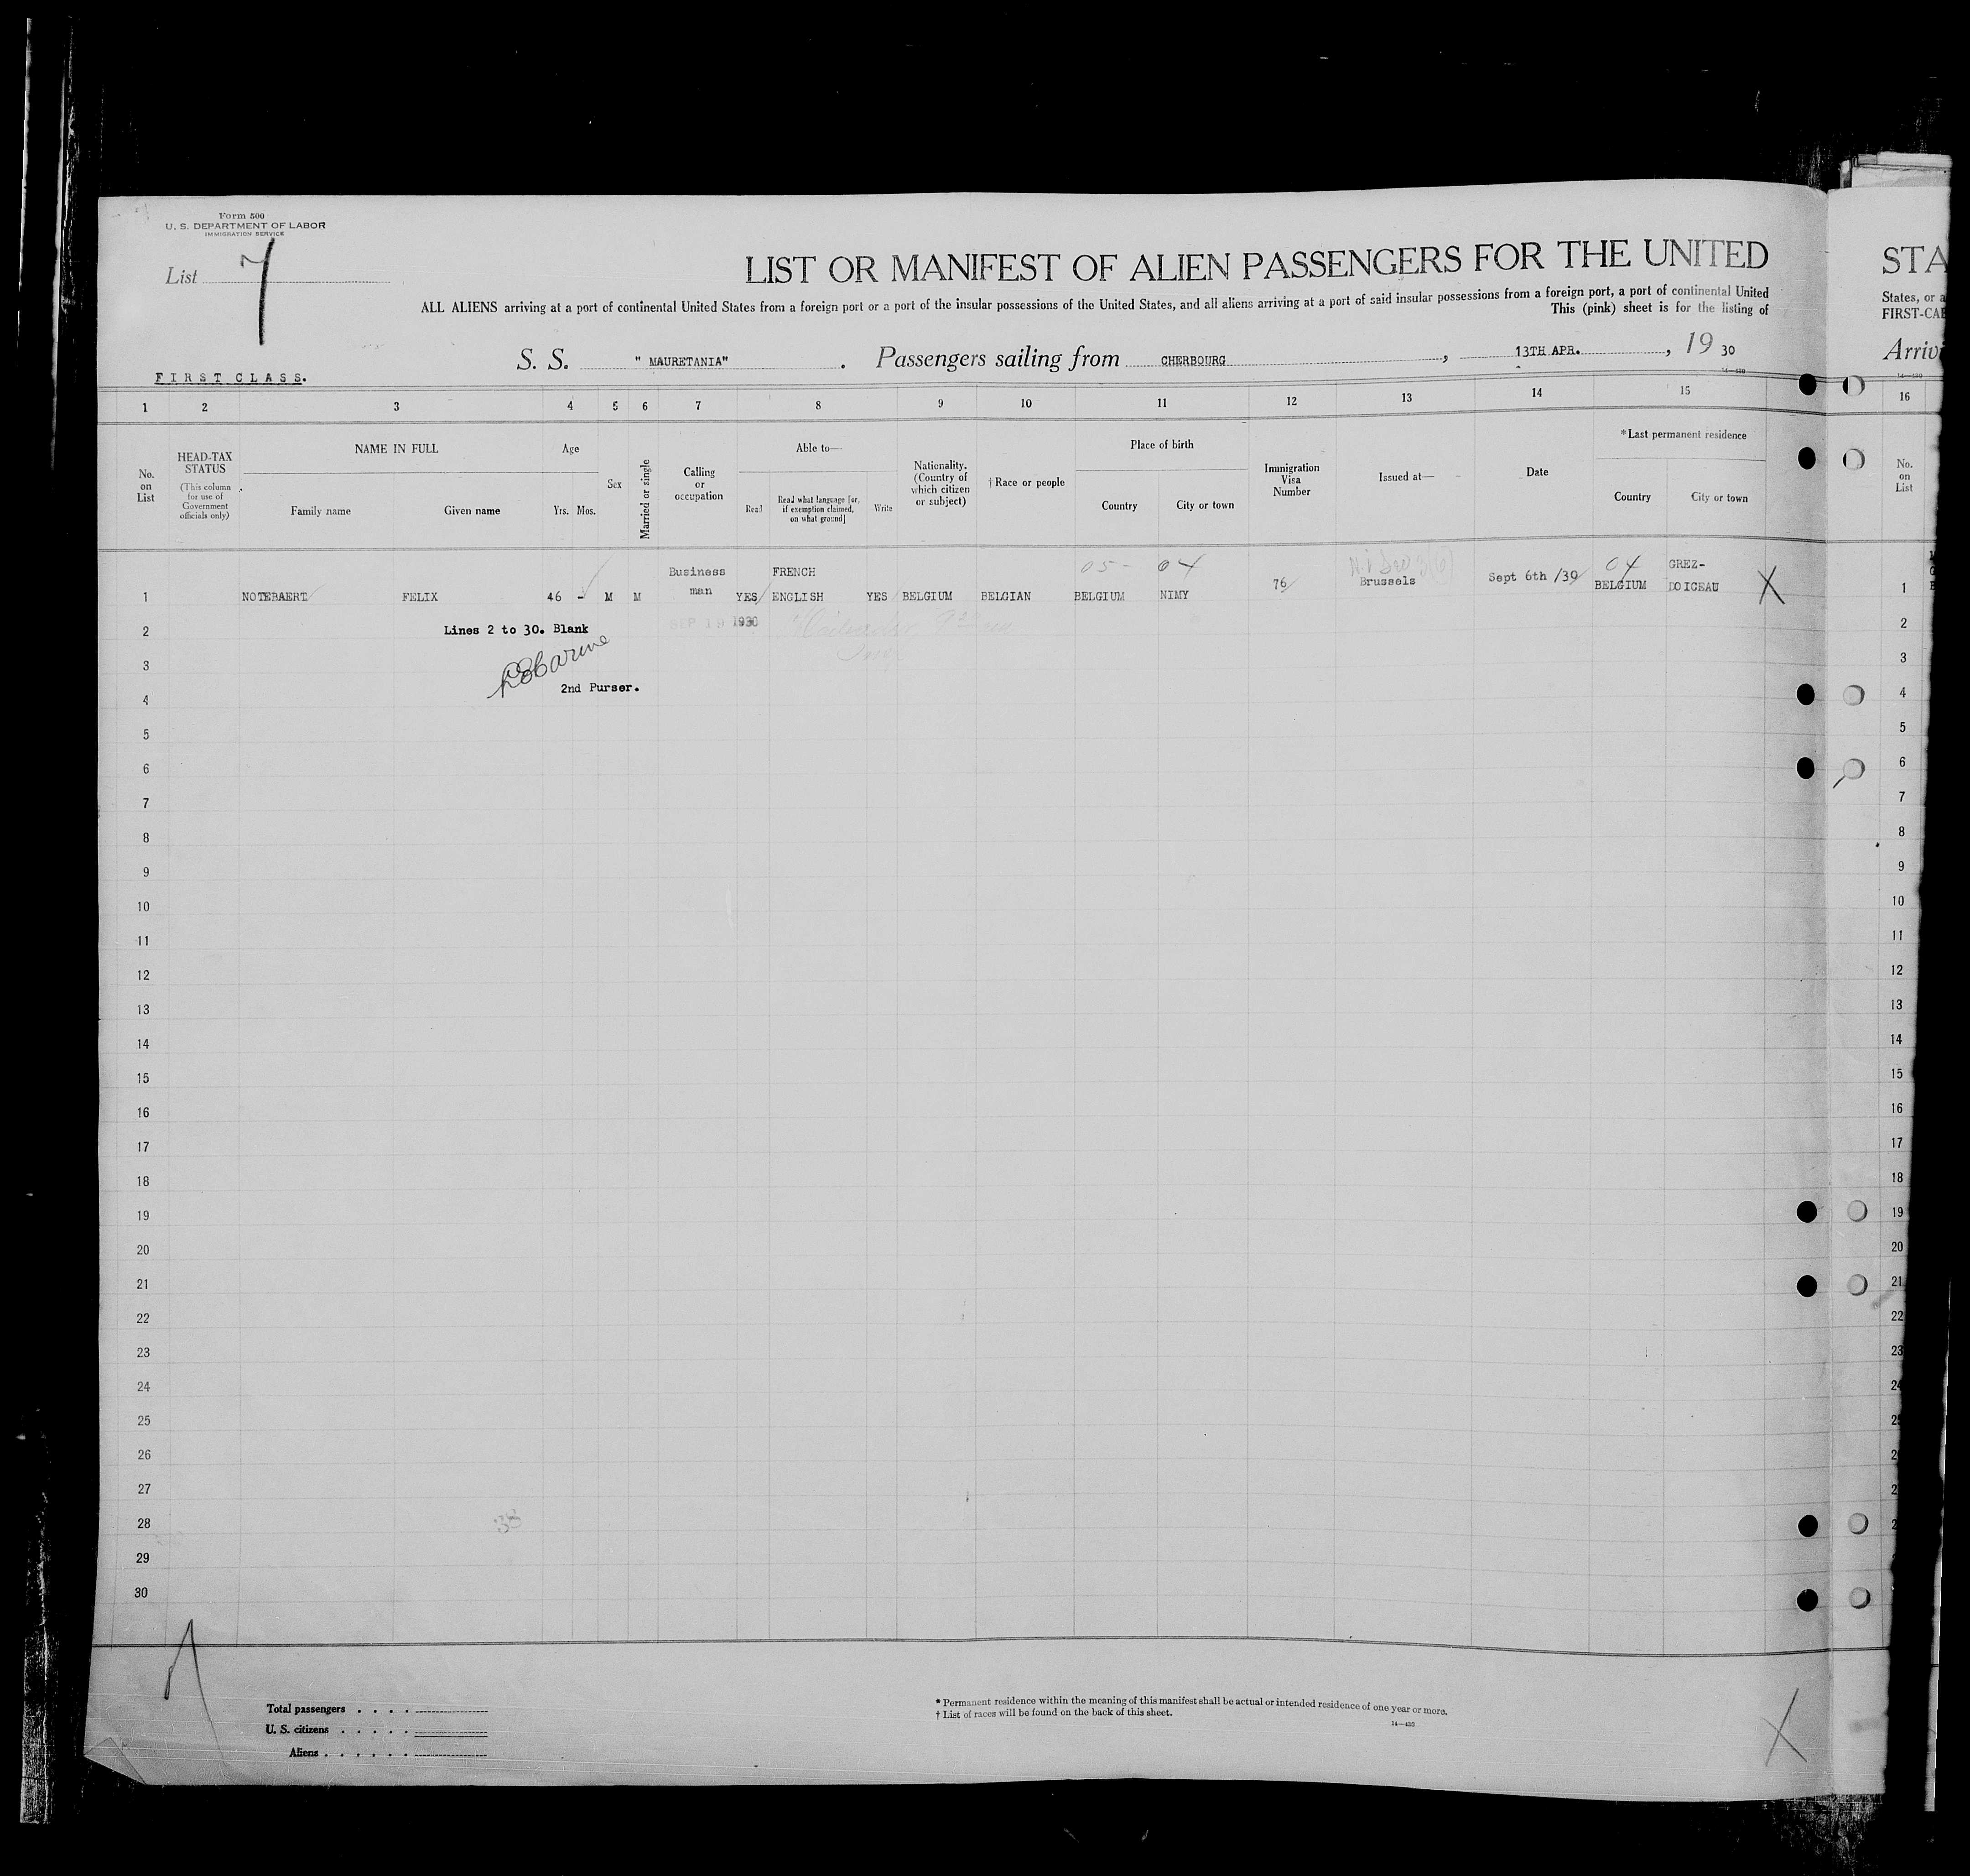 Form 500
U. S. DEPARTMENT OF LABOR
IMMIGRATION SERVICE
List 7
LIST OR MANIFEST OF ALIEN PASSENGERS FOR THE UNITED
ALL ALIENS arriving at a port of continental United States from a foreign port or a port of the insular possessions of the United States, and all aliens arriving at a port of said insular possessions from a foreign port, a port of continental United
This (pink) sheet is for the listing of
S. S. " MAURETANIA" . Passengers sailing from CHERBOURG , 13TH APR. , 19 30
FIRST CLASS.
14—430
1 2 3 4 5 6 7 8 9 10 11 12 13 14 15
No. on List
HEAD-TAX STATUS
(This column for use of Government officials only)
NAME IN FULL
Family name Given name
Age
Yrs. Mos.
Sex
Married or single
Calling or occupation
Able to—
Read
Read what language [or, if exemption claimed, on what ground]
Write
Nationality. (Country of which citizen or subject)
† Race or people
Place of birth
Country City or town
Immigration Visa Number
Issued at—
Date
*Last permanent residence
Country City or town
05- 04
04
1 NOTEBAERT FELIX 46 - M M Business man YES FRENCH ENGLISH YES BELGIUM BELGIAN BELGIUM NIMY 76 Brussels Sept 6th /30 BELGIUM GREZ-DOICEAU X
2 Lines 2 to 30. Blank SEP 19 1930
3
4 2nd Purser.
5
6
7
8
9
10
11
12
13
14
15
16
17
18
19
20
21
22
23
24
25
26
27
28 38
29
30
Total passengers . . . .
U. S. citizens . . . . .
Aliens . . . . . .
* Permanent residence within the meaning of this manifest shall be actual or intended residence of one year or more.
† List of races will be found on the back of this sheet.
14—430
X
STA
States, or a
FIRST-CAB
Arrivi
14—430
16
No. on List
1
2
3
4
5
6
7
8
9
10
11
12
13
14
15
16
17
18
19
20
21
22
23
24